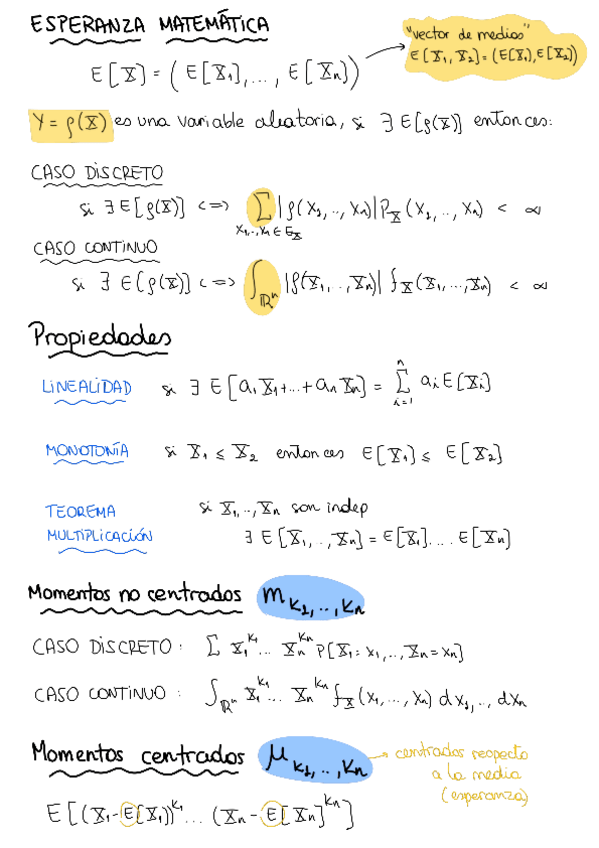 ESPERANZA MATEMÁTICA
"vector de medias"
E[X₁, X₂] = (E[X₁], E[X₂])
E[X] = (E[X₁], ..., E[Xn])
Y = g(X) es una variable aleatoria, si ∃ E[g(X)] entonces:
CASO DISCRETO
si ∃ E[g(X)] <=> ∑ |g(x₁, .., xn)| P_X (x₁, .., xn) < ∞
x₁, .., xn ∈ E_X
CASO CONTINUO
si ∃ E[g(X)] <=> ∫_ℝⁿ |g(X₁, .., Xn)| f_X (X₁, ..., Xn) < ∞
Propiedades
LINEALIDAD si ∃ E[a₁X₁+...+anXn] = ∑ⁿᵢ₌₁ aᵢ E[Xᵢ]
MONOTONÍA si X₁ ≤ X₂ entonces E[X₁] ≤ E[X₂]
TEOREMA MULTIPLICACIÓN
si X₁, .., Xn son indep
∃ E[X₁, .., Xn] = E[X₁]. ... E[Xn]
Momentos no centrados m_k₁, .., kn
CASO DISCRETO: ∑ X₁^k₁ ... Xn^kn P[X₁ = x₁, .., Xn = xn]
CASO CONTINUO: ∫_ℝⁿ X₁^k₁ ... Xn^kn f_X (x₁, ..., xn) dx₁, .., dxn
Momentos centrados μ_k₁, .., kn
centrados respecto
a la media
(esperanza)
E[(X₁ - E[X₁])^k₁ ... (Xn - E[Xn]^kn]